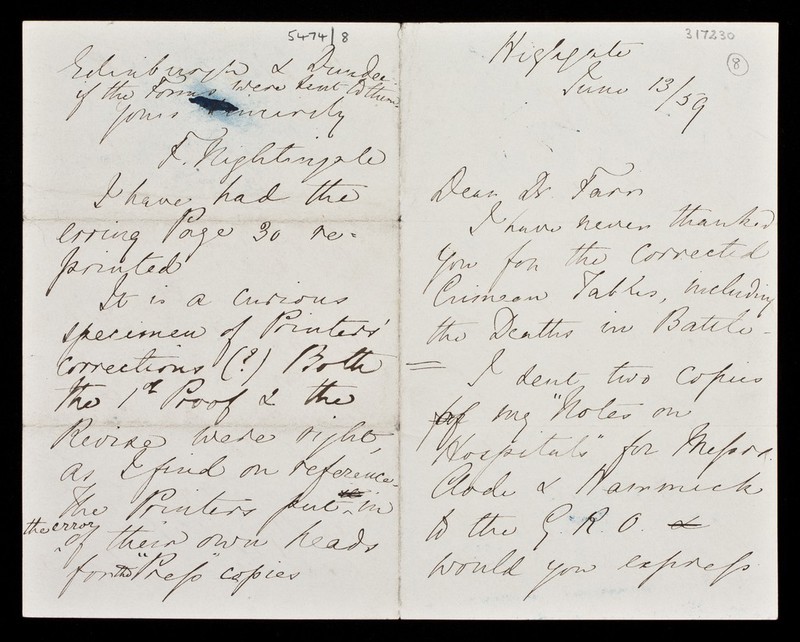 317230
8
Highgate
June 13/59
Dear Dr. Farr
I have never thanked
you for the corrected
Crimean Tables, including
the Deaths in Battle -
I sent two copies
of my "Notes on
Hospitals" for Messrs.
Clode & Hammick
to the G. R. O. &
would you express
5474/8
Edinburgh & Dundee -
if the Forms were sent to them
Yours sincerely
F. Nightingale
I have had the
erring Page 30 re=
printed
It is a curious
specimen of Printers'
corrections (?) Both
the 1st Proof & the
Revise were right,
as I find on reference -
The Printers put in
the error
of their own heads
for the "Press" copies